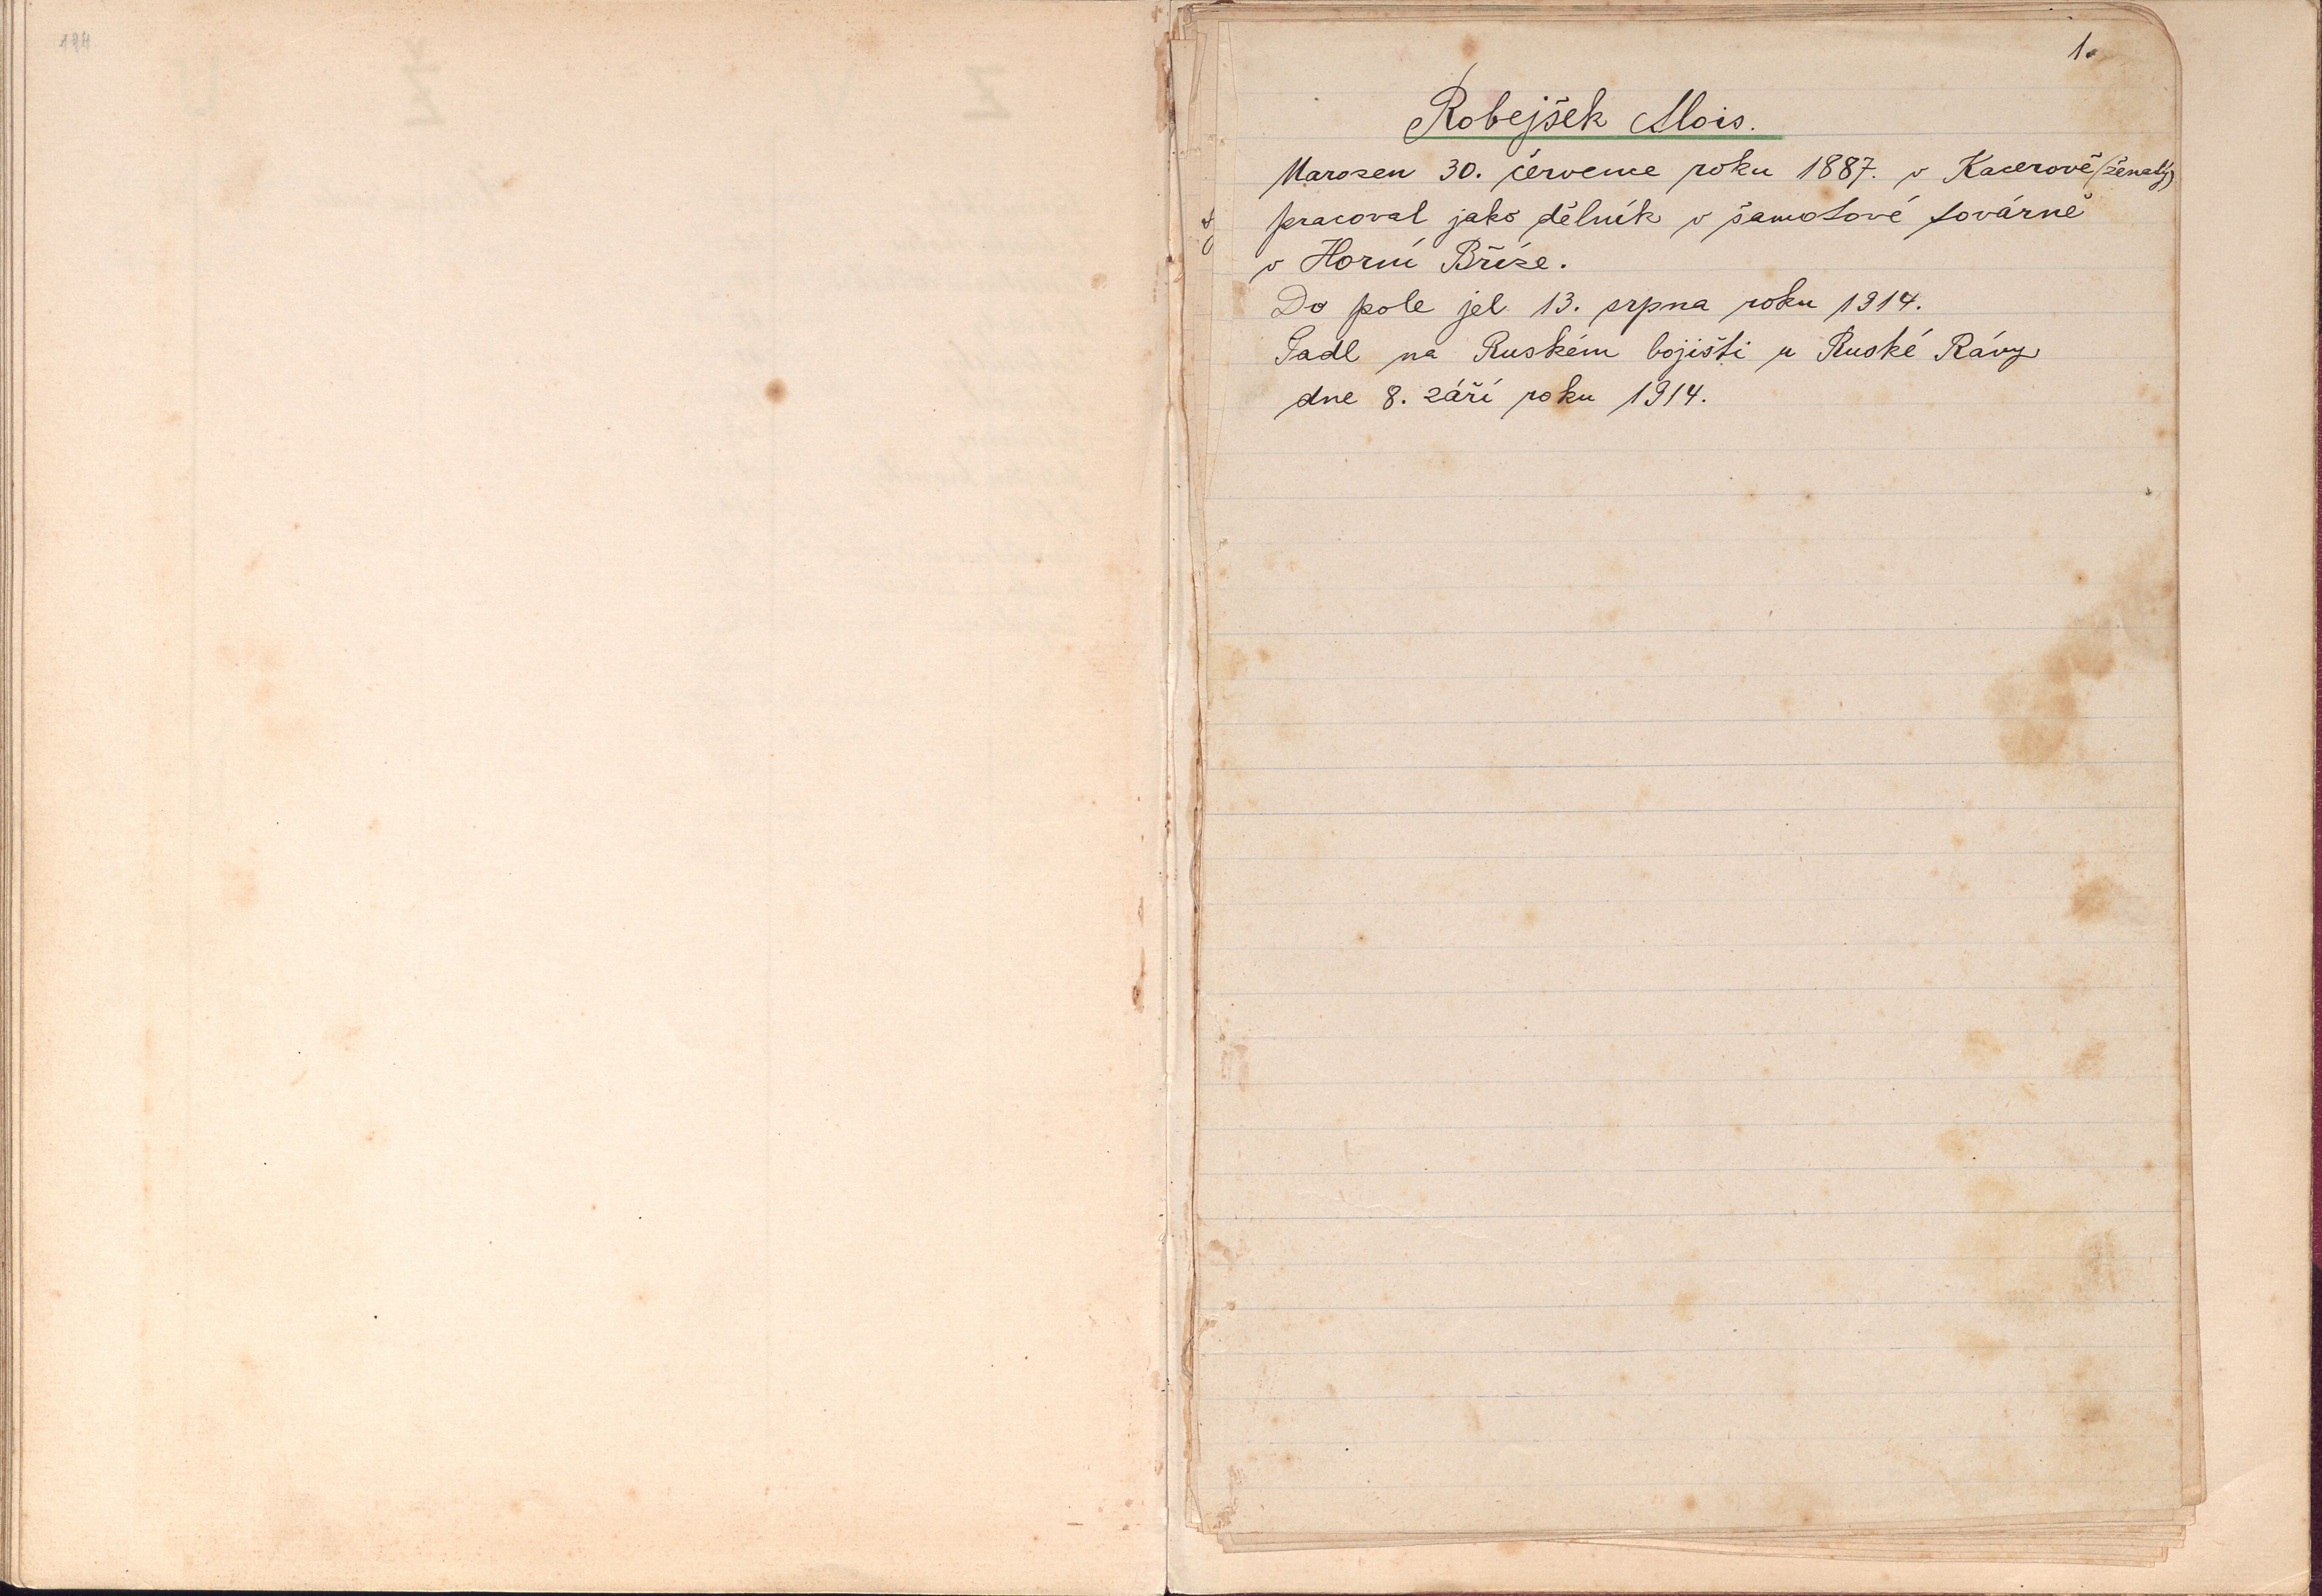 1.
Robejšek Alois.
Narozen 30. července roku 1887. v Kacerově (ženatý)
pracoval jako dělník v šamotové továrně
v Horní Bříze.
Do pole jel 13. srpna roku 1914.
Padl na Ruském bojišti u Ruské Rávy
dne 8. září roku 1914.